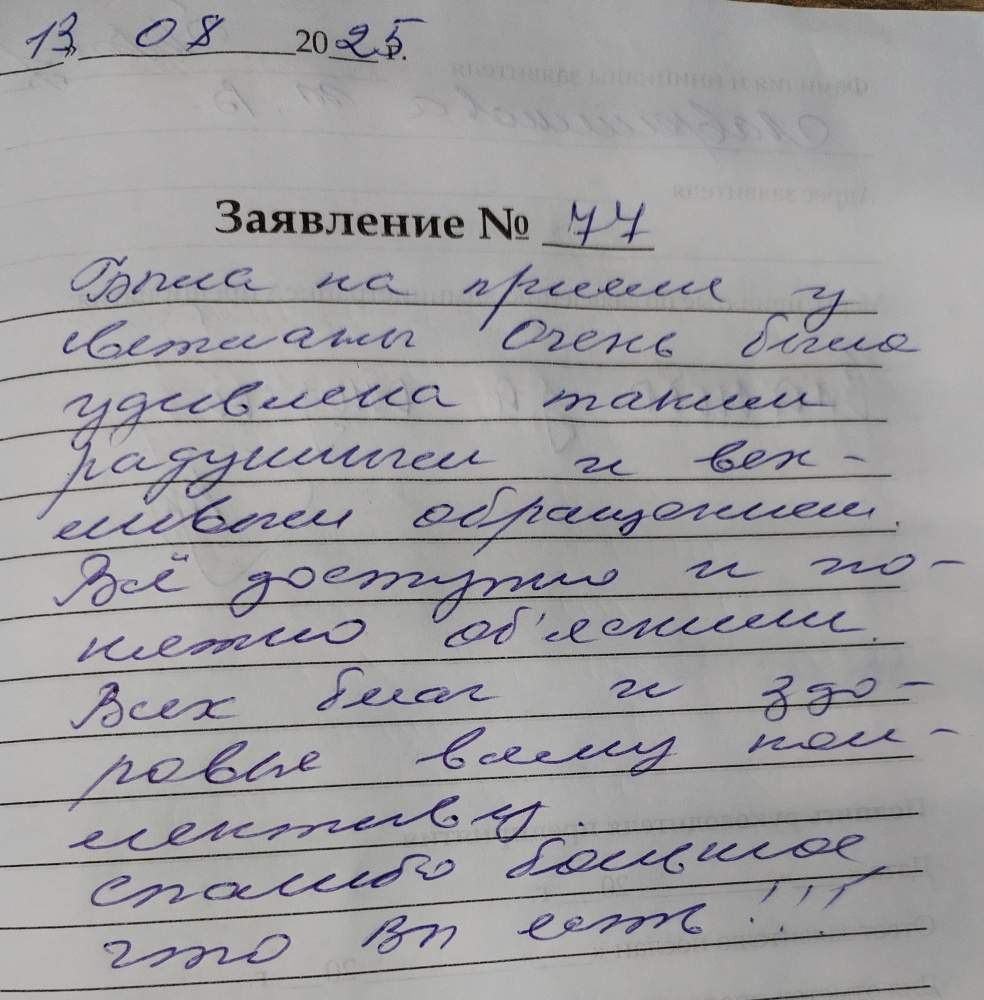 13 08 2025 г.
Заявление № 77
Была на приёме у
Светланы Очень была
удивлена таким
радушным и веж-
ливым обращением.
Всё доступно и по-
нятно об'яснили.
Всех благ и здо-
ровья всему кол-
лективу.
спасибо большое
что Вы есть!!!